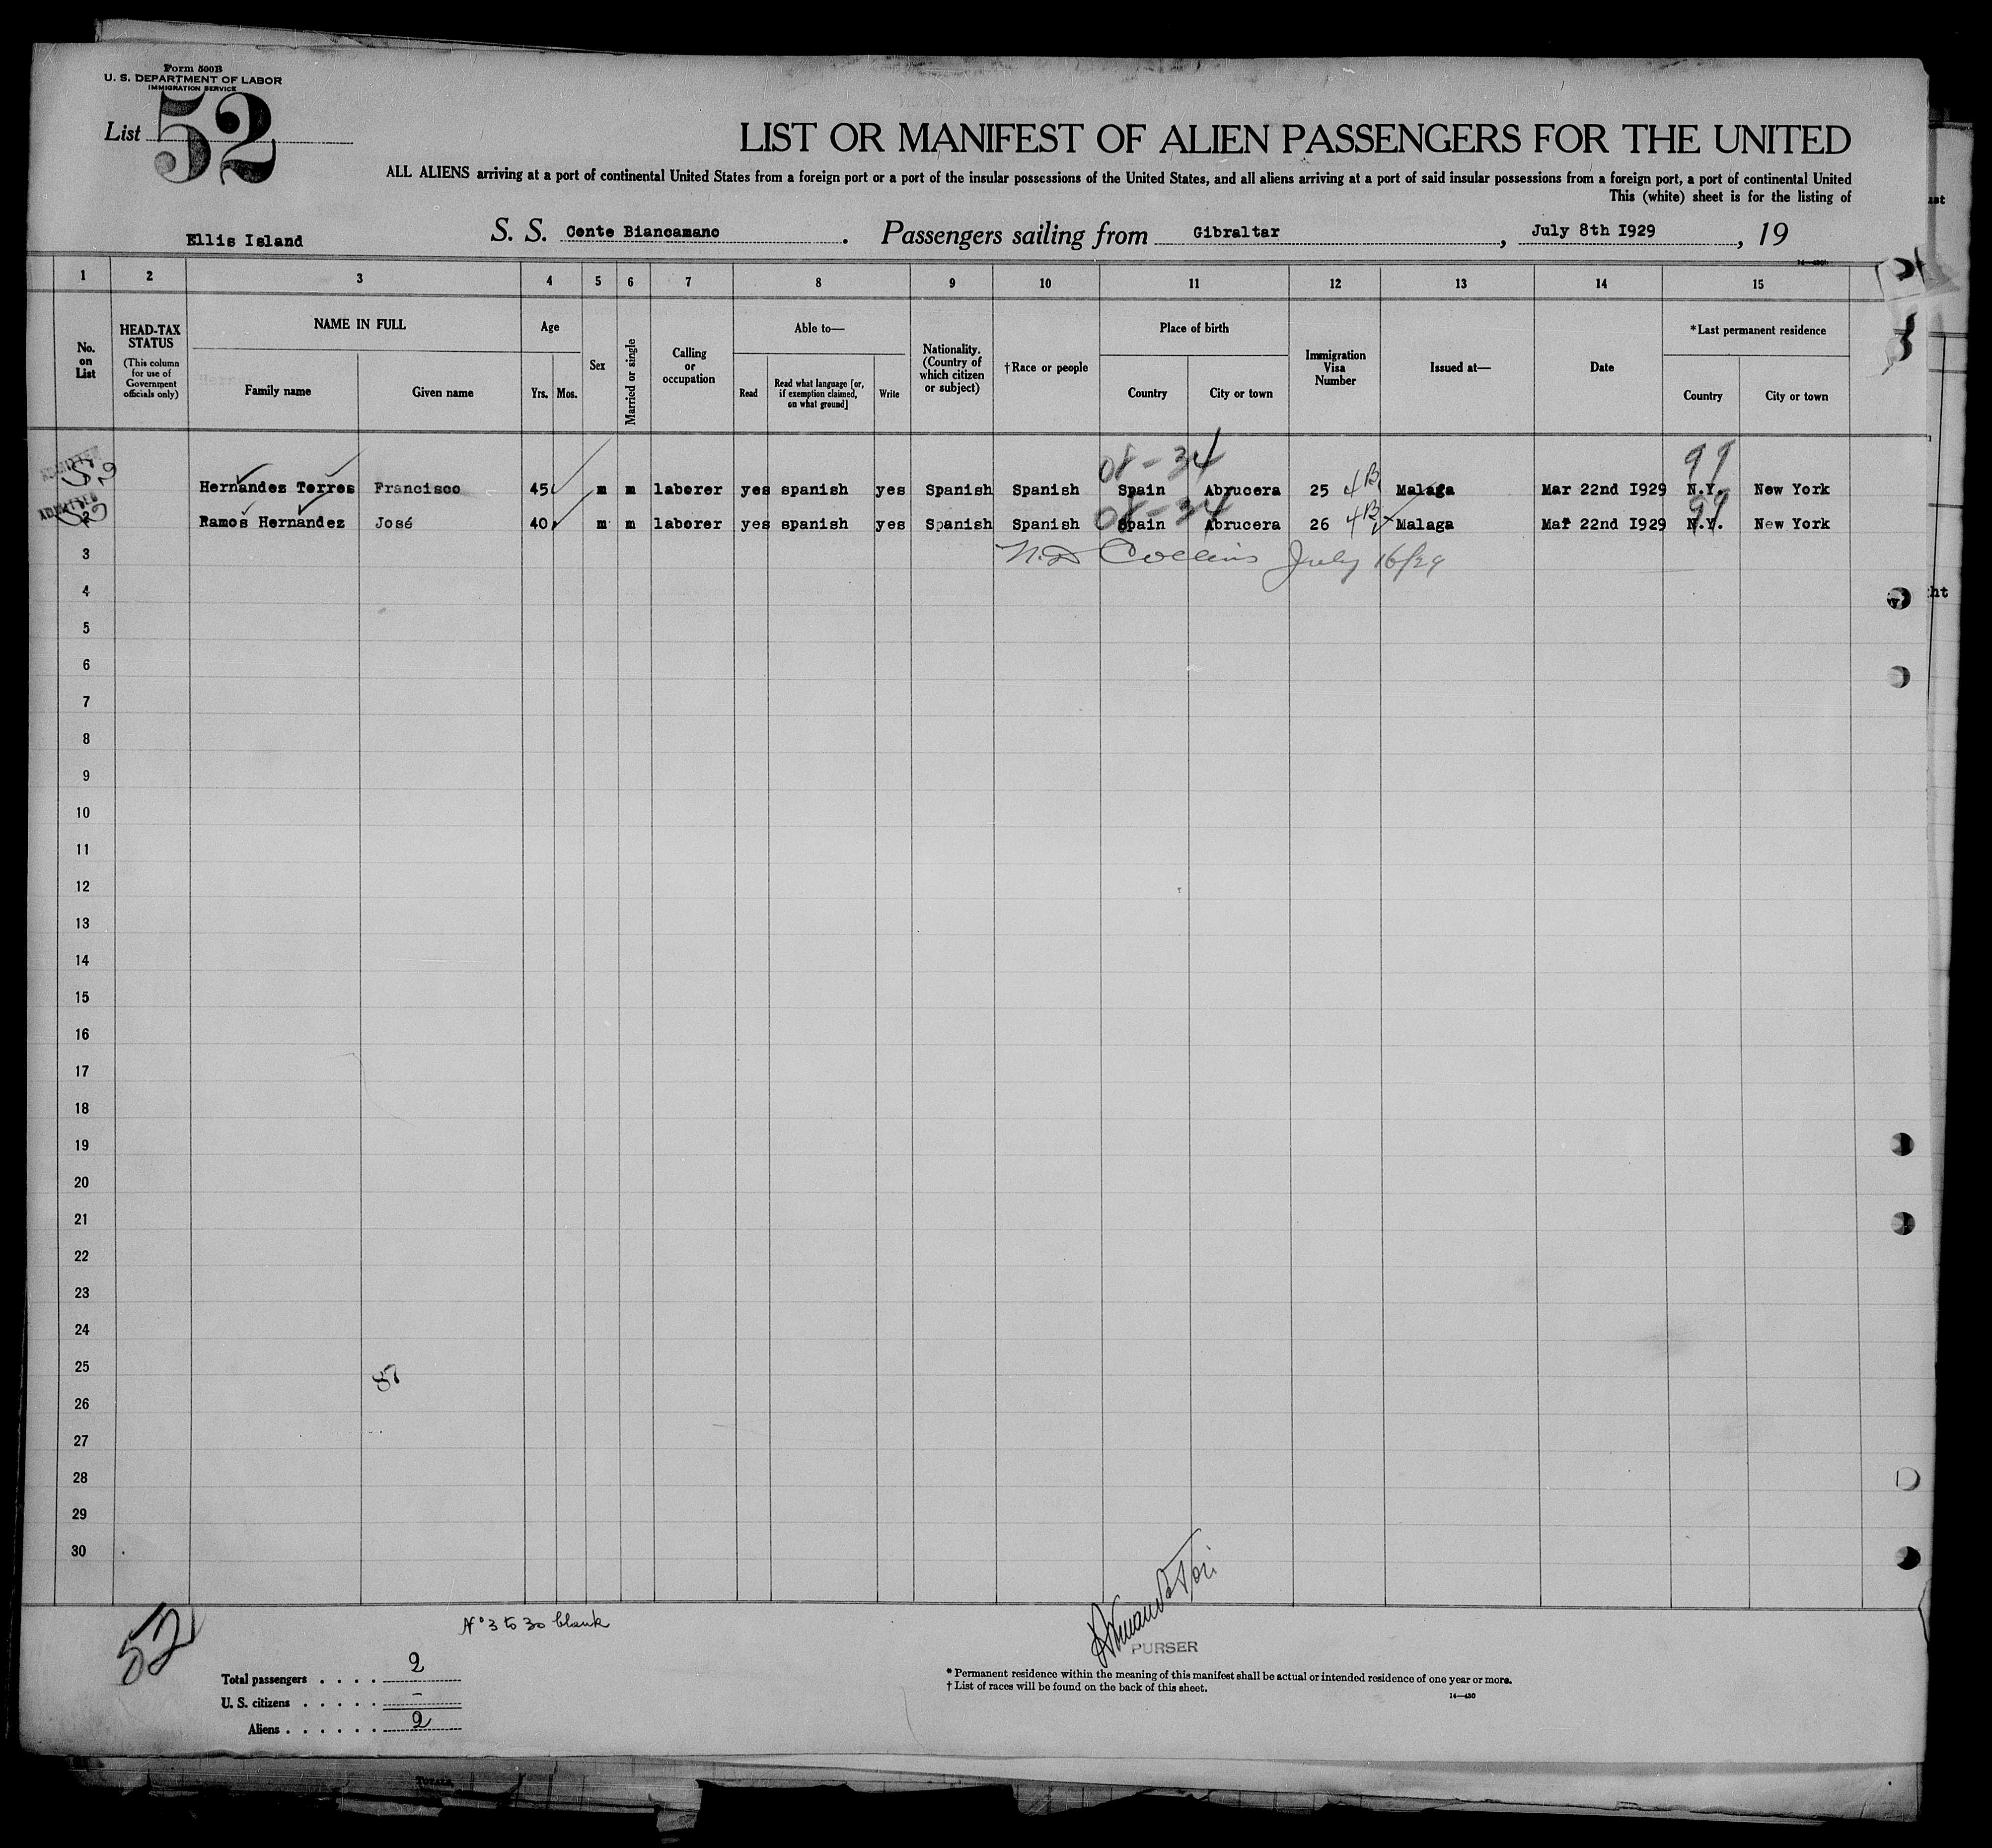 Form 500B
U. S. DEPARTMENT OF LABOR
IMMIGRATION SERVICE
List 52
LIST OR MANIFEST OF ALIEN PASSENGERS FOR THE UNITED
ALL ALIENS arriving at a port of continental United States from a foreign port or a port of the insular possessions of the United States, and all aliens arriving at a port of said insular possessions from a foreign port, a port of continental United
This (white) sheet is for the listing of
Ellis Island S. S. Conte Biancamano . Passengers sailing from Gibraltar , July 8th I929 , 19
1 2 3 4 5 6 7 8 9 10 11 12 13 14 15
No. on List
HEAD-TAX STATUS
(This column for use of Government officials only)
NAME IN FULL
Family name Given name
Age
Yrs. Mos.
Sex
Married or single
Calling or occupation
Able to—
Read Read what language [or, if exemption claimed, on what ground] Write
Nationality. (Country of which citizen or subject)
†Race or people
Place of birth
Country City or town
Immigration Visa Number
Issued at—
Date
*Last permanent residence
Country City or town
08-34 99
Hernandez Torres Francisco 45 m m laborer yes spanish yes Spanish Spanish Spain Abrucera 25 4B Malaga Mar 22nd I929 N.Y. New York
08-34 99
2 Ramos Hernandez José 40 m m laborer yes spanish yes Spanish Spanish Spain Abrucera 26 4B Malaga Mar 22nd I929 N.Y. New York
3 N.D Collins July 16/29
4
5
6
7
8
9
10
11
12
13
14
15
16
17
18
19
20
21
22
23
24
25
26
27
28
29
30
52
Nº 3 to 30 blank
PURSER
Total passengers . . . . 2
U. S. citizens . . . . . –
Aliens . . . . . . 2
* Permanent residence within the meaning of this manifest shall be actual or intended residence of one year or more.
† List of races will be found on the back of this sheet.
14—430